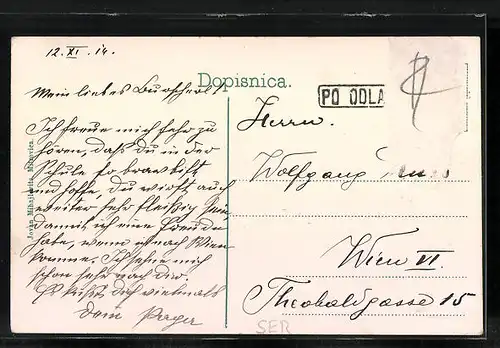 12. XI. 14.
Dopisnica.
PO ODLA
Mein liebes Burscherl!
Ich freue mich sehr zu
hören, daß du in der
Schule so brav bist
und hoffe, du wirst auch
weiter sehr fleißig sein
damit ich eine Freude
habe, wenn ich nach Wien
komme. Ich sehne mich
schon sehr nach dir.
Es küßt dich vielmals
dein
Herrn
Wolfgang
Wien VI.
Theobaldgasse 15
SER